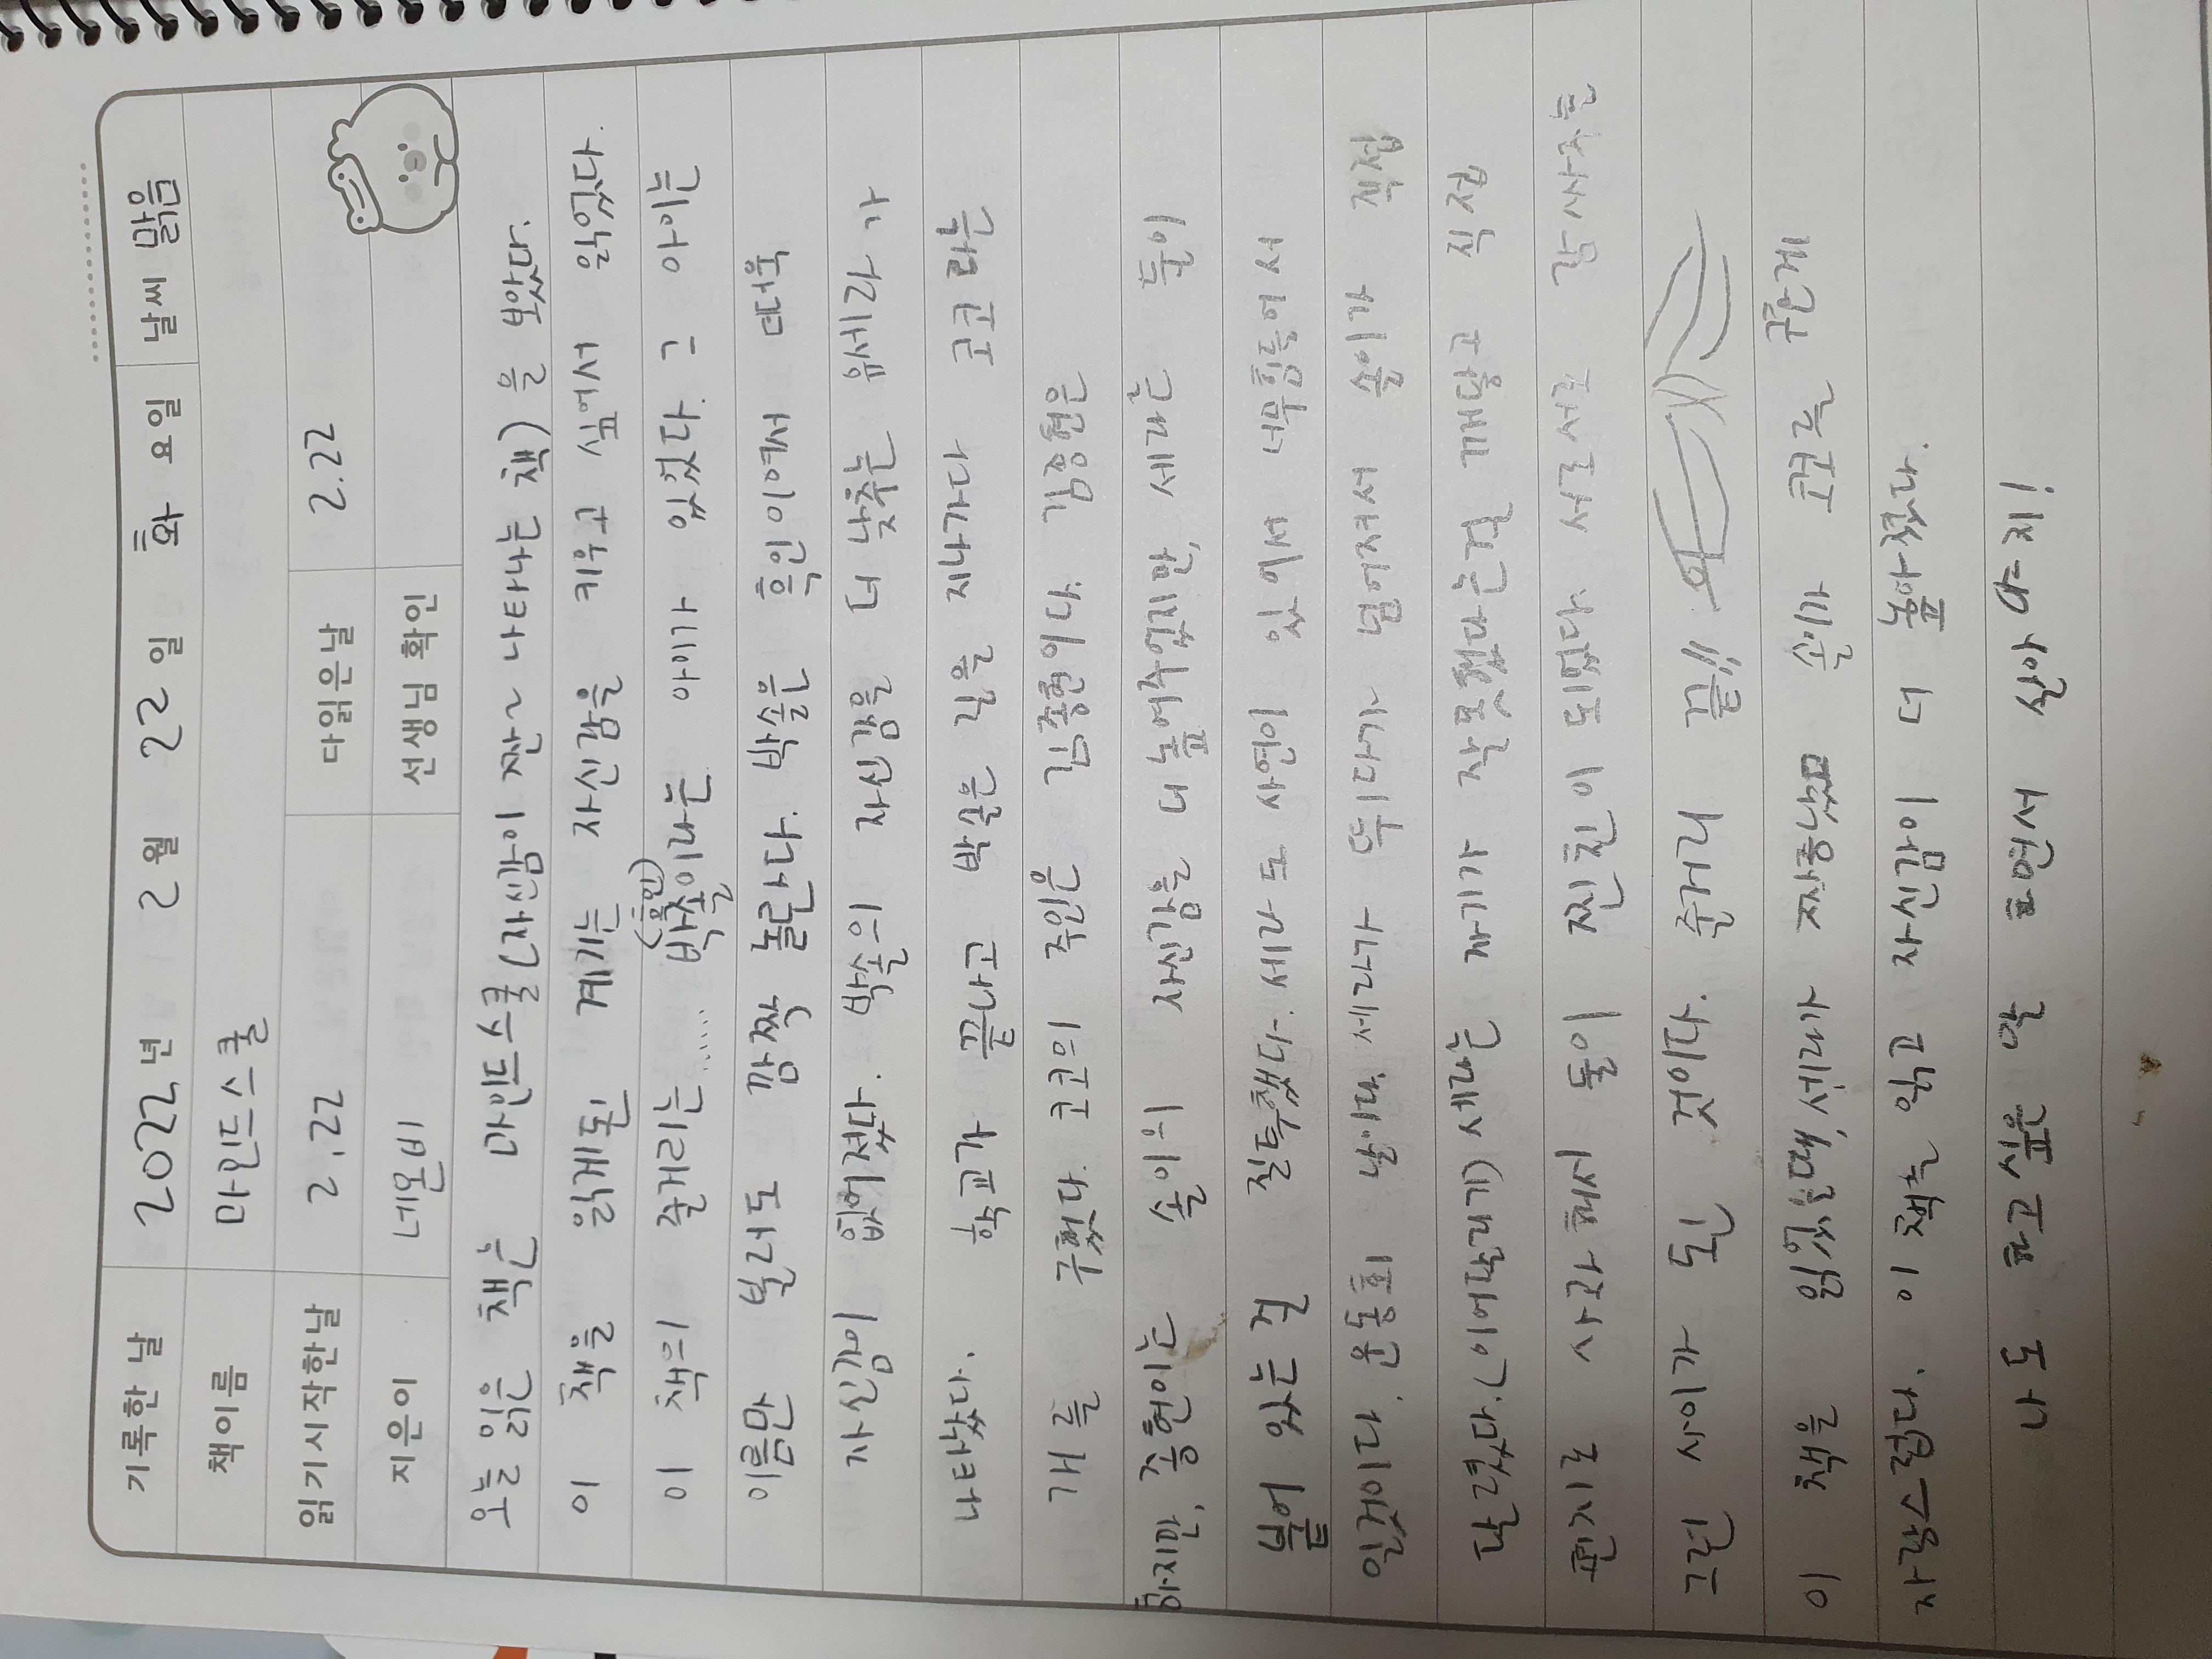 기록한 날 2022년 2월 22일 화요일 날씨 맑음
책이름 마인드스쿨
읽기시작한날 2.22 다읽은날 2.22
지은이 네온비 선생님 확인
오늘 읽은 책은 마인드스쿨(자신감이 짠~ 나타나는 책)을 보았다.
이 책을 읽게된 계기는 자신감을 키우고 싶어서 읽었다.
(흑인)
이 책의 줄거리는...... 박솔이라는 아이가 있었다. 그 아이는
이름만 불러도 깜짝 놀란다. 박솔은 흑인이여서 더욱
자신감이 없어졌다. 박솔의 자신감을 더 낮추는 유세라가
나타났다. 학교가 끝나고 박솔은 길을 지나가다 코코라는
개를 구했다. 코코의 주인은 김종현이다. 김종현은
하지만, 종현이는 솔이의 자신감을 더 높여주었지만, 세라는 둘이
붙어 있는 걸 질투했다. 세라도 사연이 있어서 너무힘들어서
일것이다. 운동회 날이다. 세라가 뛰다가 넘어져서 솔이가 직접
달렸다.(이어달리기) 세라는 자기가 잘못했다는걸 깨닿고 직접
편지로 사과해서 둘이 찐친이 되었다. 서로서로 감싸주는
그런 사이가 된 것이다. 줄거리 끝!!
이 책을 읽었을때, 세라가 짜증났고 솔이가 코코를 구한게
자랑스럽다. 이 책을 읽고 자신감이 더 높아졌다.
나도 하고싶은 말 하면서 살아야지!